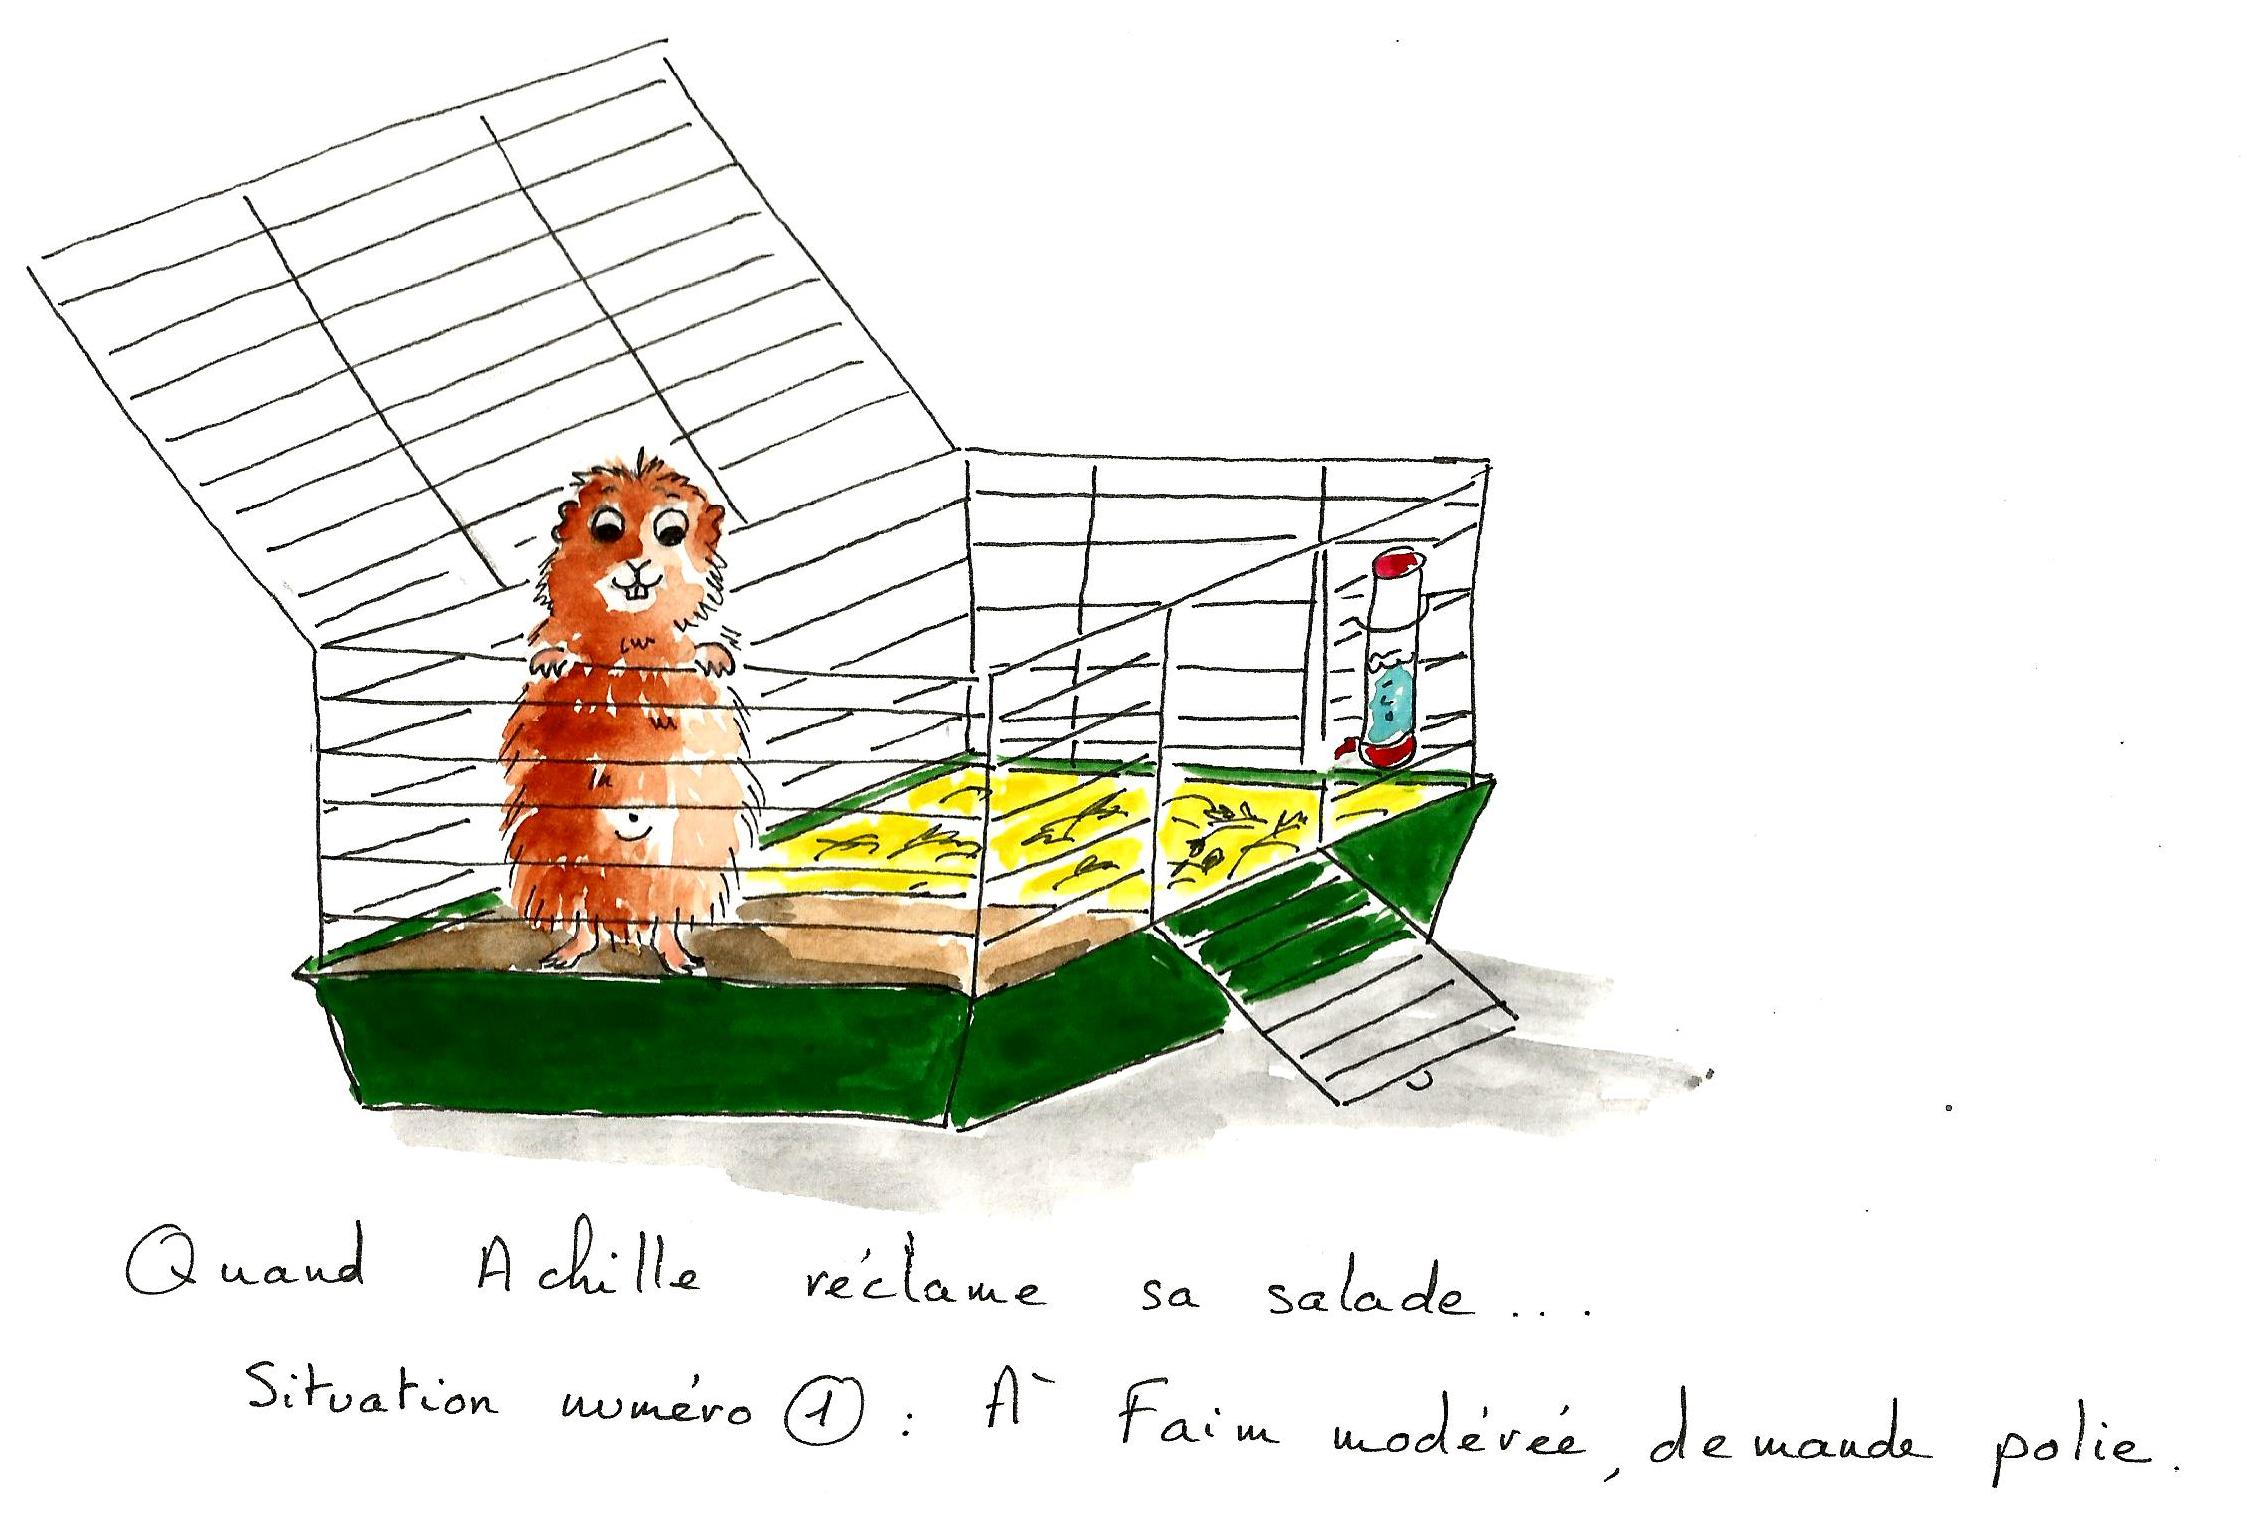 Quand Achille réclame sa salade...
Situation numéro 1 : À Faim modérée, demande polie.